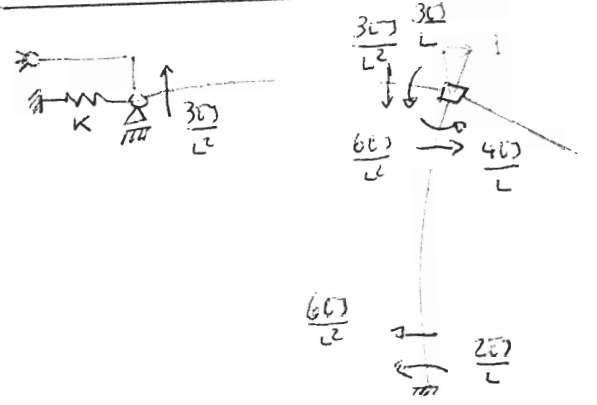 K
3EJ
L²
3EJ
L²
3EJ
L
1
6EJ
L²
4EJ
L
6EJ
L²
2EJ
L